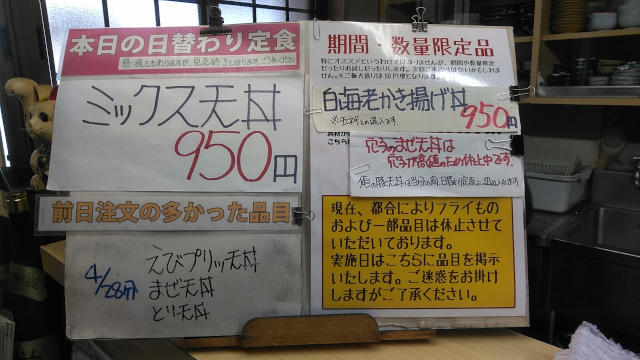 本日の日替わり定食
昼・夜ともありますが、完売終了となります。ご了承ください
ミックス天丼
950円
前日注文の多かった品目
4/28分
えびプリッ天丼
まぜ天丼
とり天丼
期間・数量限定品
特にオススメというわけではありませんが、期間や数量限定
だったりお試しだったりします。次回ご来店時はないかもしれま
せん。※ご飯大盛りは50円増となります。
白海老かき揚げ丼
950円
穴子のまぜ天丼は
穴子高値のため休止中です。
現在、都合によりフライもの
および一部品目は休止させて
いただいております。
実施日はこちらに品目を掲示
いたします。ご迷惑をお掛け
しますがご了承ください。